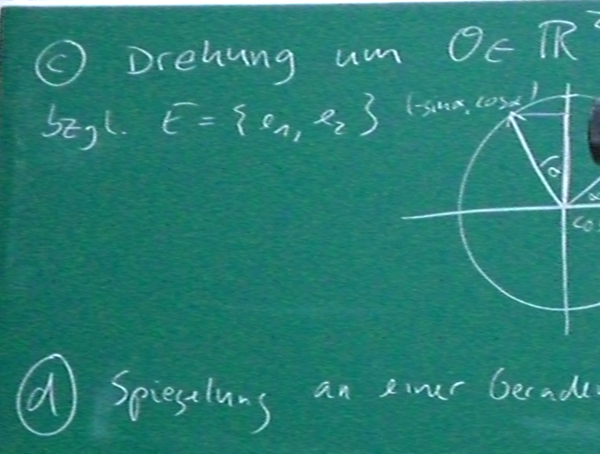 (c) Drehung um O∈ ℝ²
bzgl. E = {e₁, e₂}
(-sinα, cosα)
α
α
cos
(d) Spiegelung an einer Geraden